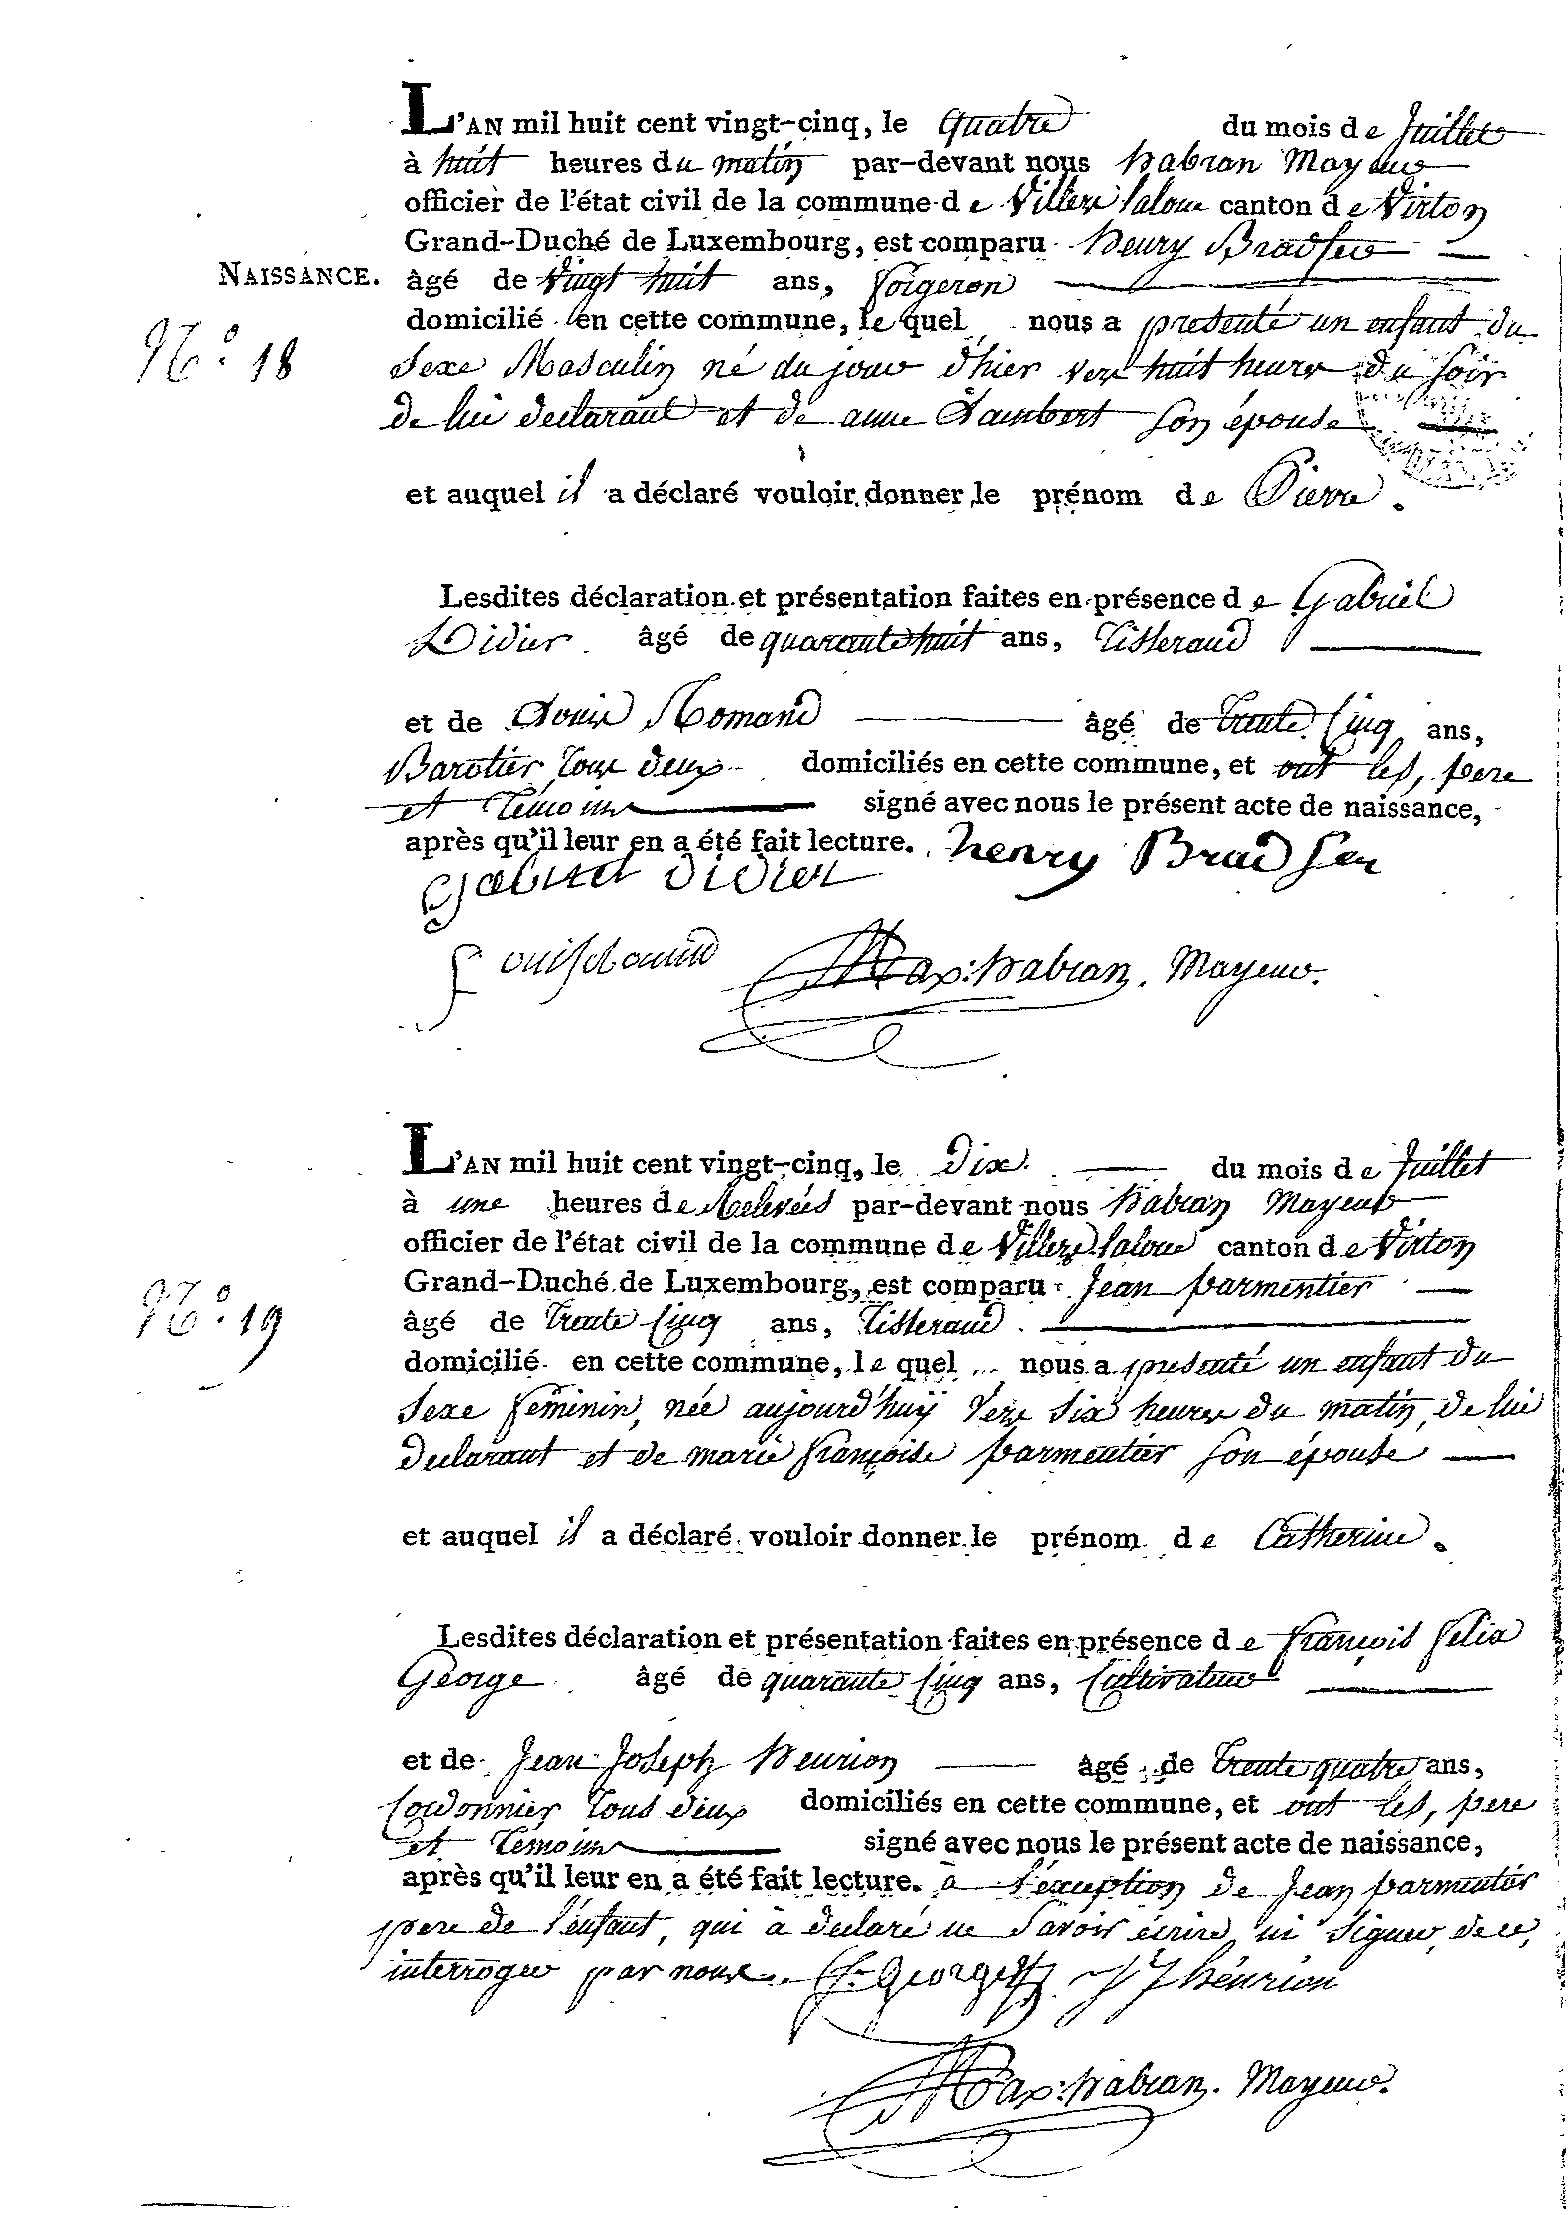 L'AN mil huit cent vingt-cinq, le quatre du mois de Juillet
à huit heures du matin par-devant nous habran Mayeur
officier de l'état civil de la commune de Villers laloue canton de Virton
Grand-Duché de Luxembourg, est comparu henry Bradfer
NAISSANCE. âgé de Vingt huit ans, forgeron
domicilié en cette commune, le quel nous a presenté un enfant du
N.o 18 Sexe Masculin né du jour d'hier vers huit heures du soir
de lui declarant et de anne Lambert son épouse
et auquel il a déclaré vouloir donner le prénom de Pierre.
Lesdites déclaration et présentation faites en présence de Gabriel
Didier âgé de quarante huit ans, Tisserand
et de Louis Romand âgé de trente Cinq ans,
Tous deux domiciliés en cette commune, et ont les, pere
et Témoins signé avec nous le présent acte de naissance,
après qu'il leur en a été fait lecture. henry Bradfer
Gabriel Didier
Max: habran. Mayeur.
L'AN mil huit cent vingt-cinq, le Dix du mois de Juillet
à une heures de Relevées par-devant nous habran Mayeur
officier de l'état civil de la commune de Villers laloue canton de Virton
Grand-Duché de Luxembourg, est comparu Jean parmentier
N.o 19 âgé de trente Cinq ans, Tisserand
domicilié en cette commune, le quel nous a presenté un enfant du
Sexe féminin, née aujourd'huÿ Vers Six heures du matin, de lui
declarant et de marie françoise parmentier son épouse
et auquel il a déclaré vouloir donner le prénom de Catherine.
Lesdites déclaration et présentation faites en présence de françois felix
George âgé de quarante Cinq ans, Cultivateur
et de Jean Joseph henrion âgé de trente quatre ans,
Cordonnier Tous deux domiciliés en cette commune, et ont les, pere
et Temoins signé avec nous le présent acte de naissance,
après qu'il leur en a été fait lecture. à l'exception de Jean parmentier
pere de l'enfant, qui à declaré ne Savoir écrire ni Signer, de ce,
interroger par nous. J J henrion
Max: habran. Mayeur.